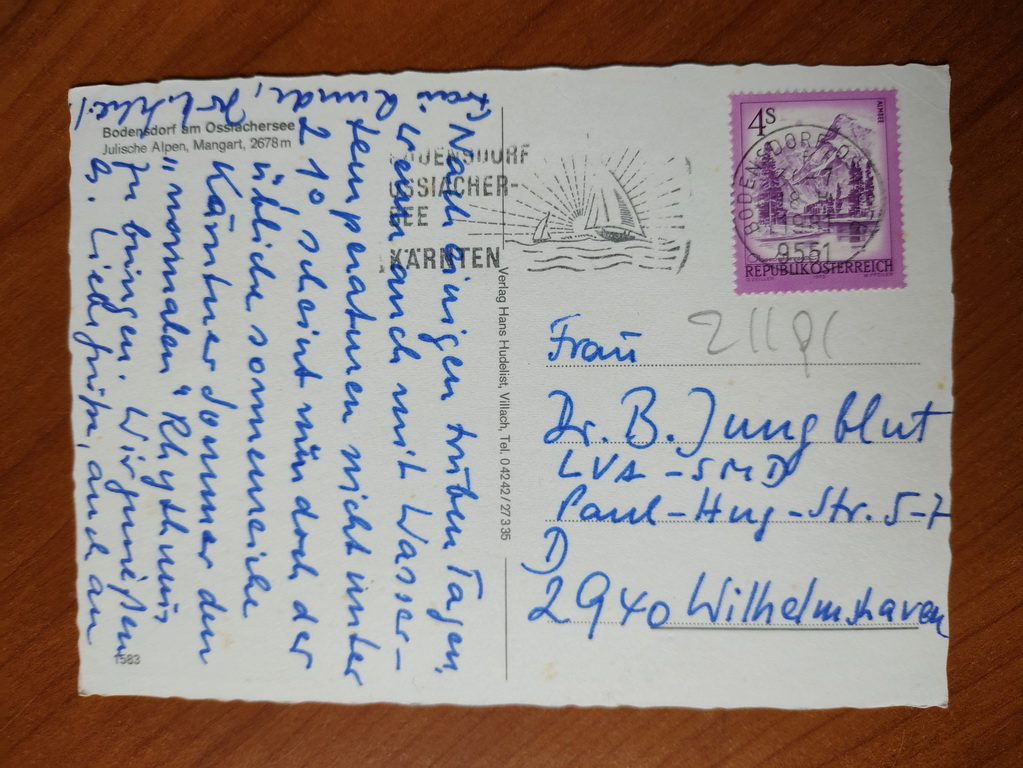 Bodensdorf am Ossiachersee
Julische Alpen, Mangart, 2678 m
Nach einigen trüben Tagen,
wenn auch mit Wasser-
temperaturen nicht unter
21° scheint nun doch der
übliche sonnenreiche
Kärntner Sommer den
„normalen“ Rhythmus
zu bringen. Wir genießen
es. Liebe Grüße, auch an
Frau Runde,
1583
Verlag Hans Hudelist, Villach, Tel. 04242/27335
BODENSDORF
OSSIACHER-
SEE
KÄRNTEN
4S
ALMSEE
BODENSDORF
9551
REPUBLIK ÖSTERREICH
Frau
Dr. B. Jungblut
LVA - SMD
Paul-Hug-Str. 5-7
D
2940 Wilhelmshaven